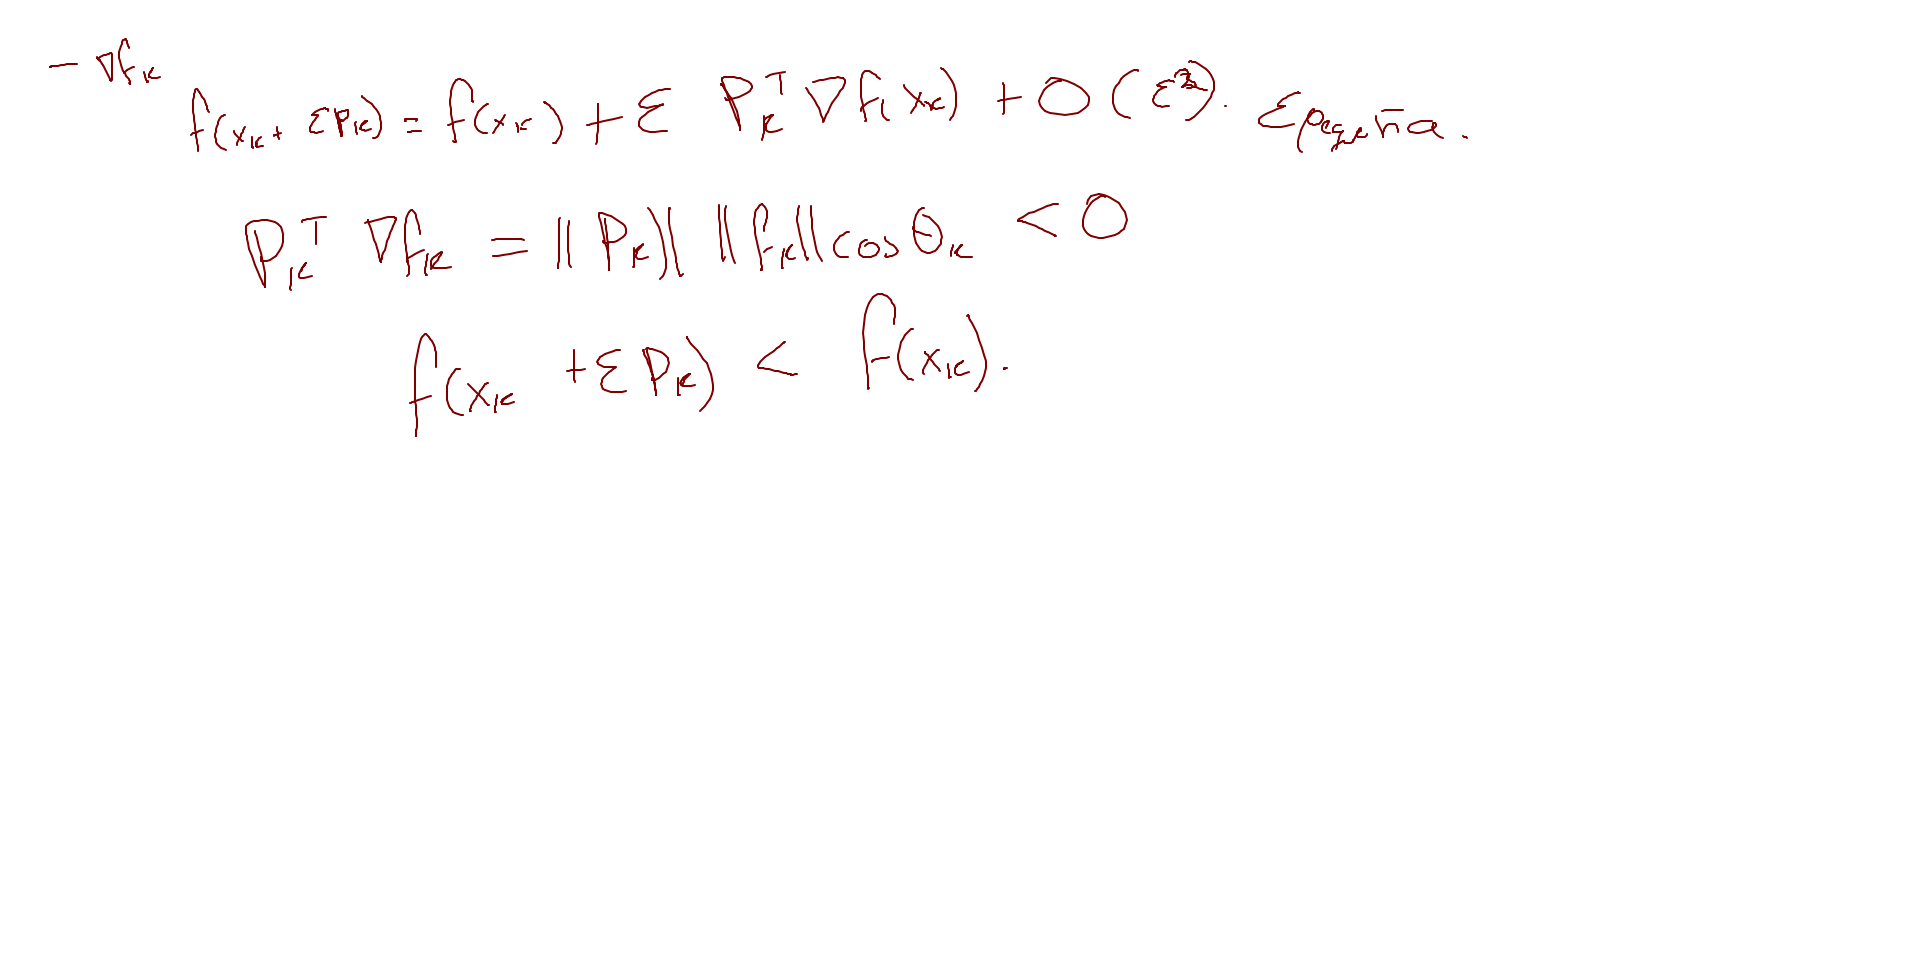 - ∇fₖ
f(xₖ + εpₖ) = f(xₖ) + ε Pₖᵀ ∇f(xₖ) + O(ε²). ε pequeña.
Pₖᵀ ∇fₖ = ||Pₖ|| ||fₖ|| cos θₖ < 0
f(xₖ + εpₖ) < f(xₖ).